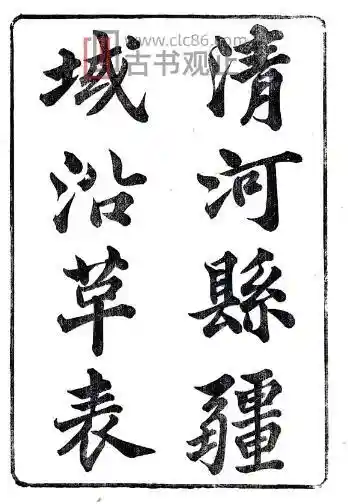 清河縣疆
域沿草表
www.clc86.com
古书观止